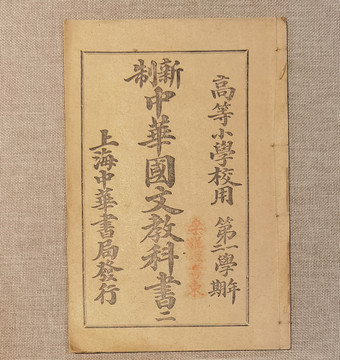 高等小學校用 第一學年第二學期
新制中華國文教科書二
上海中華書局發行